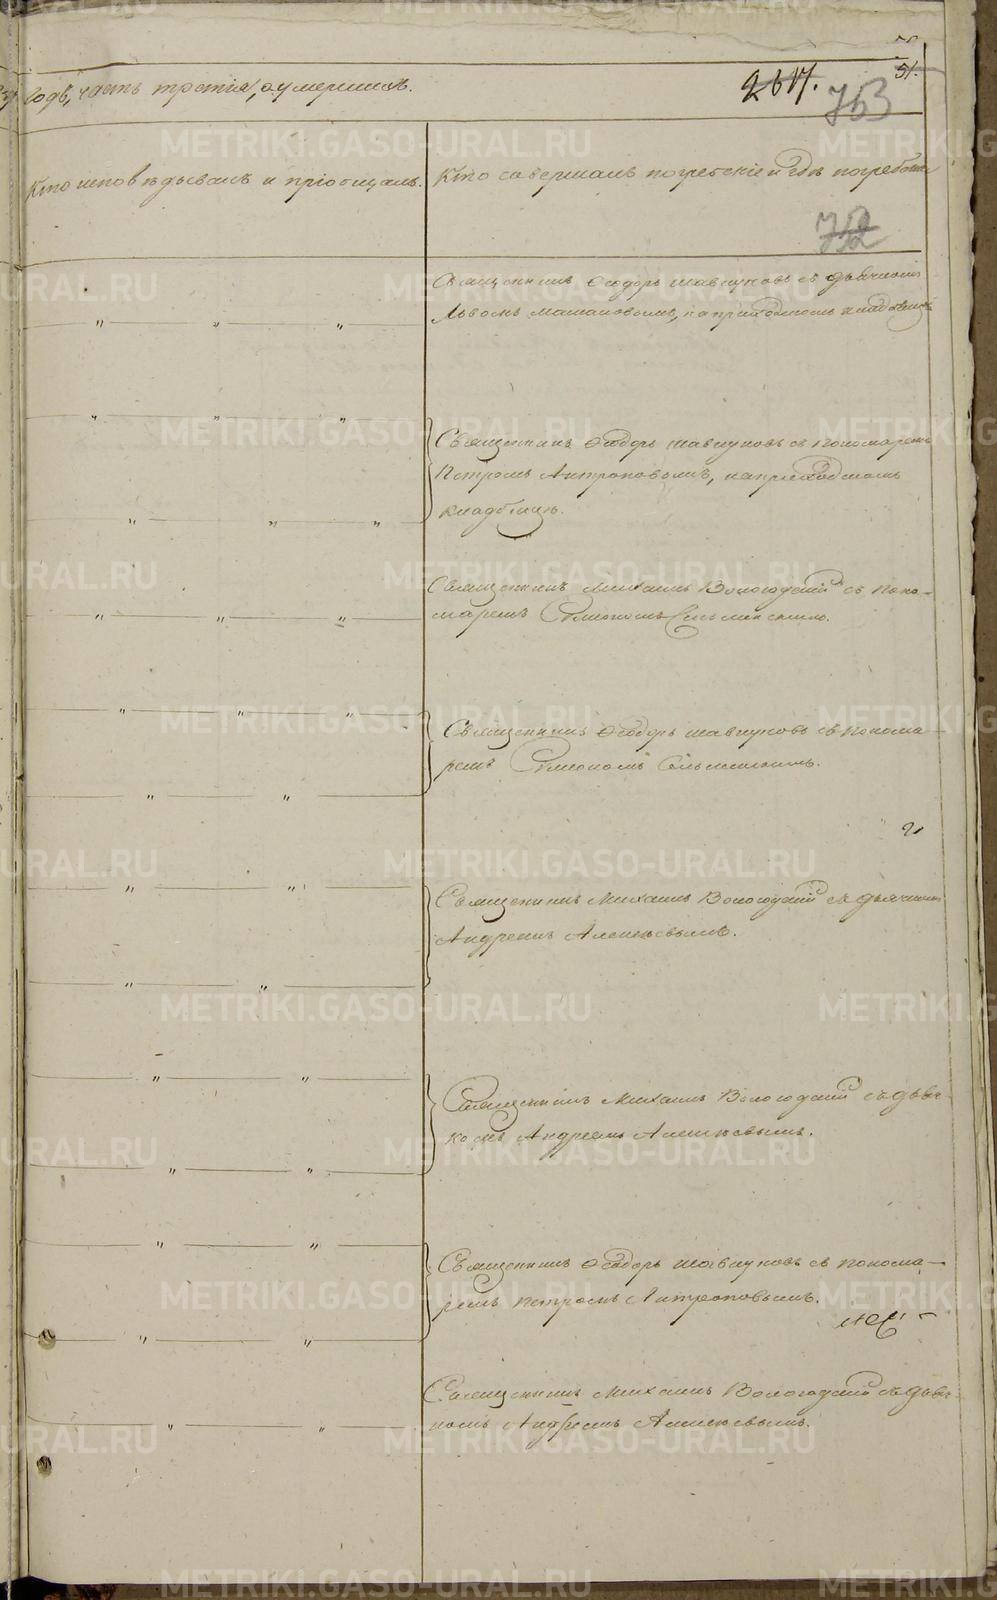 51.
годѣ, часть третія, о умершихъ.
267.
753
Кто исповѣдывалъ и пріобщалъ.
Кто совершалъ погребеніе и гдѣ погребены
752
Священникъ Ѳеодоръ Шавкуновъ съ дьячкомъ
Львомъ, на приходскомъ кладбищѣ
Священникъ Ѳеодоръ Шавкуновъ съ пономаремъ
Петромъ Антроповымъ, на приходскомъ
кладбищѣ.
Священникъ Михаилъ Вологодскій съ поно-
маремъ Симеономъ
Священникъ Ѳеодоръ Шавкуновъ съ понома-
ремъ Симеономъ
Священникъ Михаилъ Вологодскій съ дьячкомъ
Андреемъ Алексѣевымъ.
Священникъ Михаилъ Вологодскій съ дьяч-
комъ Андреемъ Алексѣевымъ.
Священникъ Ѳеодоръ Шавкуновъ съ понома-
ремъ Петромъ Антроповымъ.
Священникъ Михаилъ Вологодскій съ дьяч-
комъ Андреемъ Алексѣевымъ.
METRIKI.GASO-URAL.RU